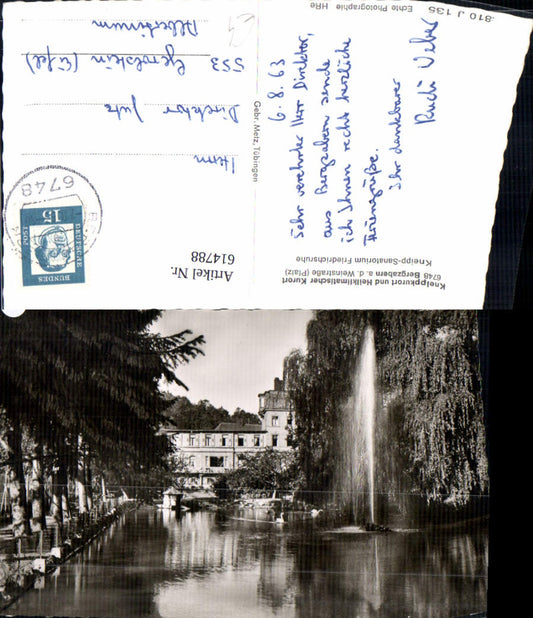 Kneippkurort und Heilklimatischer Kurort
6748 Bergzabern a. d. Weinstraße (Pfalz)
Kneipp-Sanatorium Friedrichsruhe
6.8.63
Sehr verehrter Herr Direktor,
aus Bergzabern sende
ich Ihnen recht herzliche
Feriengrüße.
Ihr dankbarer
Rudi Weber
.810 J 135 Echte Photographie HRe
Gebr. Metz, Tübingen
6748
15
DEUTSCHE
BUNDES
POST
Herrn
Direktor Jutz
553 Gerolstein (Eifel)
Albertinum
Artikel Nr.
614788